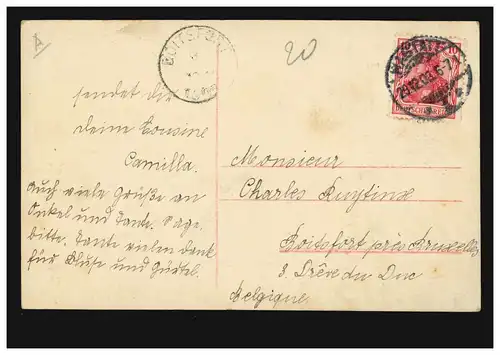 A
20
BOITSFORT
29.12.03. 6-7
sendet dir
deine Cousine
Camilla.
Auch viele Grüße an
Onkel und Tante. Sage,
bitte, Tante vielen dank
für Bluse und Gürtel.
Monsieur
Charles
Boitsfort près Bruxelles
3. Drève du Duc
Belgique